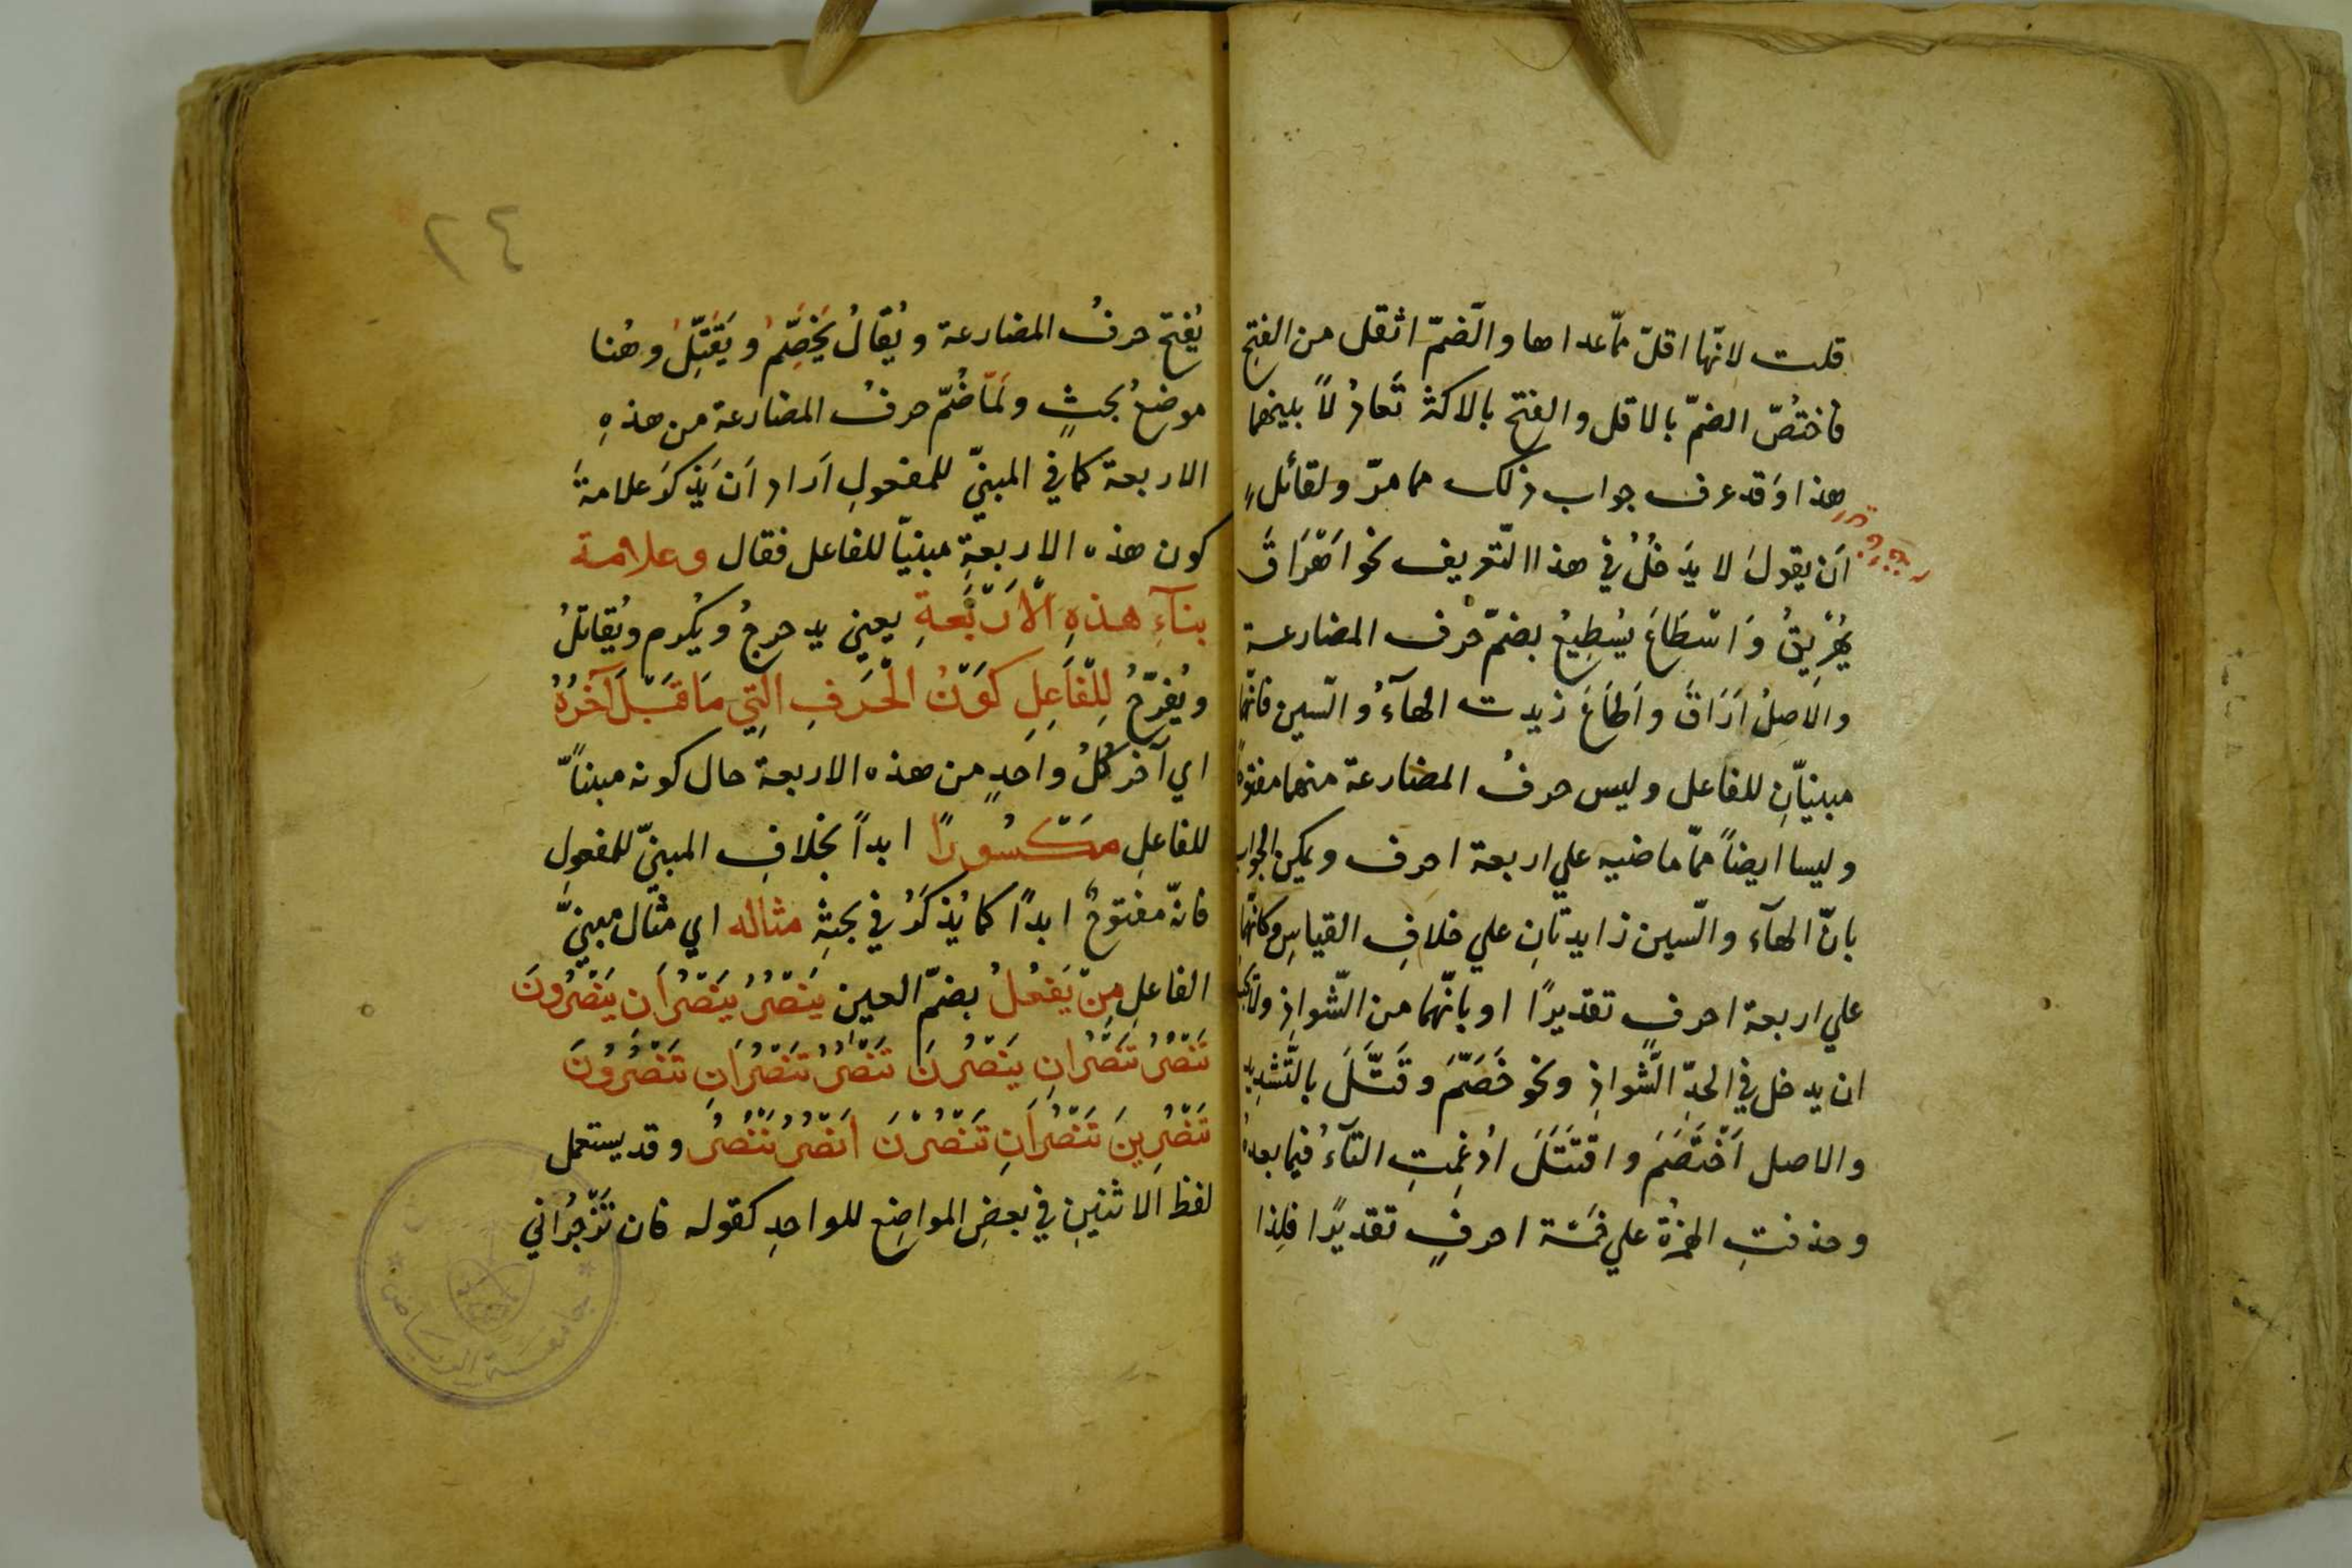 قلت لانّها اقلّ ممّا عداها والضّمّ اثقل من الفتح
فاختُصّ الضمّ بالاقل والفتح بالاكثر تَعادُلاً بينهما
هذا وَقد عرف جواب ذلك مما مرّ ولقائلٍ
اَن يقولَ لا يَدخُلُ في هذا التّعريف نحو اَهْرَاقَ
يُهْرِيقُ وَاَسْطَاعَ يُسْطِيعُ بضمّ حرف المضارعة
والاَصلُ اَرَاقَ واَطَاعَ زيدت الهآءُ والسّين فانّهما
مبنيّانِ للفاعل وليس حرفُ المضارعة منهما مفتوحًا
وليسا ايضاً ممّا ماضيه علي اربعة احرف ويمكن الجواب
بانّ الهآء والسّين زايدتانِ علي خلافِ القياسِ وكانّهما
علي اربعة احرفٍ تقديرًا او بانّهما من الشّواذِ ولا يجب
ان يدخل في الحدِّ الشّواذِ ونحو خَصَّمَ وقَتَّلَ بالتَّشدِيد
والاصل اَخْتَصَمَ واقتَتَلَ ادُغِمتِ التآءُ فيما بعدهُ
وحذفتِ الهمزةُ علي خمسَة احرفٍ تقديرًا فلِذا
٢٤
يُفتح حرفُ المضارعة ويُقالُ يَخَصِّمُ ويَقَتِّلُ وهُنا
موضعُ بحثٍ ولَمّا ضُمّ حرفُ المضارعة من هذهِ
الاربعة كما في المبنيّ للمفعولِ اَراد اَن يَذكرَ علامةَ
كون هذه الاربعةِ مبنيّا للفاعل فقال وعلامة
بنآءِ هذهِ الْاَرْبَعةِ يعني يدحرجُ ويُكرم ويُقاتلُ
ويُفرّحُ لِلْفَاعِلِ كَوْنُ الْحَرفِ الّتِي مَا قَبْلَ آخرُهُ
اي آخر كُلُ واحدٍ من هذه الاربعة حال كونه مبنيًّا
للفاعلِ مَكْسُورًا ابداً بخلافِ المبنيّ للمفعولِ
فانّه مفتوحٌ ابدًا كما يُذكَرُ في بحثهِ مثاله اي مثال مبنيّ
الفاعلِ مِنْ يَفعُلُ بضمّ العين يَنْصُرُ يَنْصُرَانِ يَنْصُرُونَ
تَنْصُرُ تَنْصُرَانِ يَنْصُرْنَ تَنْصُرُ تَنْصُرَانِ تَنْصُرُونَ
تَنْصُرِينَ تَنْصُرَانِ تَنْصُرْنَ اَنْصُرُ نَنْصُرُ وقد يستعمل
لفظ الاثنينِ في بعضِ المواضِع للواحدِ كقوله فان تَزْجُرَاني